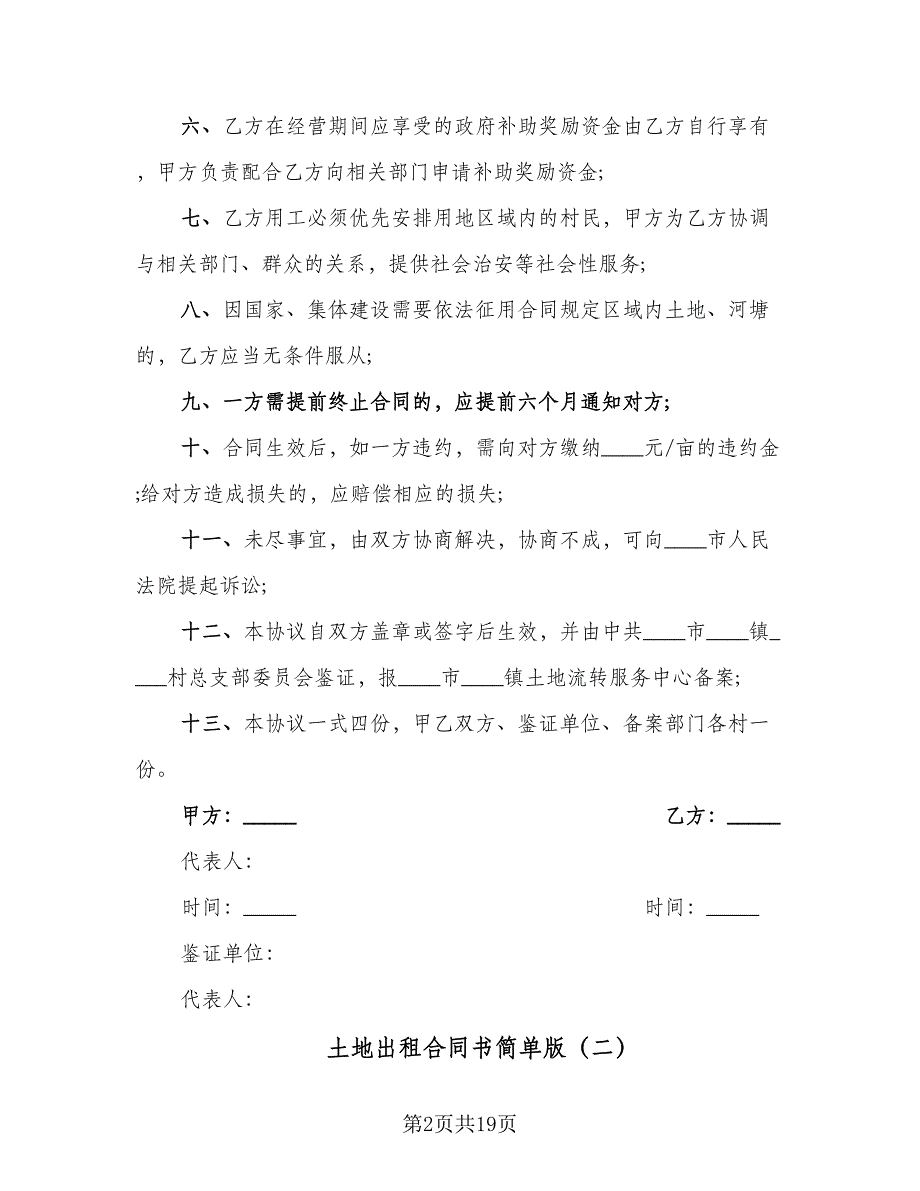 六、乙方在经营期间应享受的政府补助奖励资金由乙方自行享有
，甲方负责配合乙方向相关部门申请补助奖励资金;
七、乙方用工必须优先安排用地区域内的村民，甲方为乙方协调
与相关部门、群众的关系，提供社会治安等社会性服务;
八、因国家、集体建设需要依法征用合同规定区域内土地、河塘
的，乙方应当无条件服从;
九、一方需提前终止合同的，应提前六个月通知对方;
十、合同生效后，如一方违约，需向对方缴纳____元/亩的违约金
;给对方造成损失的，应赔偿相应的损失;
十一、未尽事宜，由双方协商解决，协商不成，可向____市人民
法院提起诉讼;
十二、本协议自双方盖章或签字后生效，并由中共____市____镇_
___村总支部委员会鉴证，报____市____镇土地流转服务中心备案;
十三、本协议一式四份，甲乙双方、鉴证单位、备案部门各村一
份。
甲方：_____ 乙方：_____
代表人：
时间：_____ 时间：_____
鉴证单位：
代表人：
土地出租合同书简单版（二）
第2页共19页